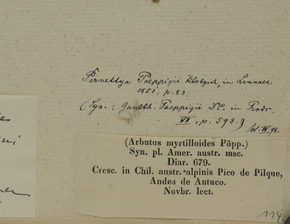 Pernettya Poeppigii Klotzsch, in Linnaea
1851. p. 83.
(Syn: Gaulth. Poeppigii DC. in Prodr.
VII, p. 593.)
(Arbutus myrtilloides Pöpp.)
Syn. pl. Amer. austr. msc.
Diar. 679.
Cresc. in Chil. austr.-alpinis Pico de Pilque,
Andes de Antuco.
Novbr. lect.